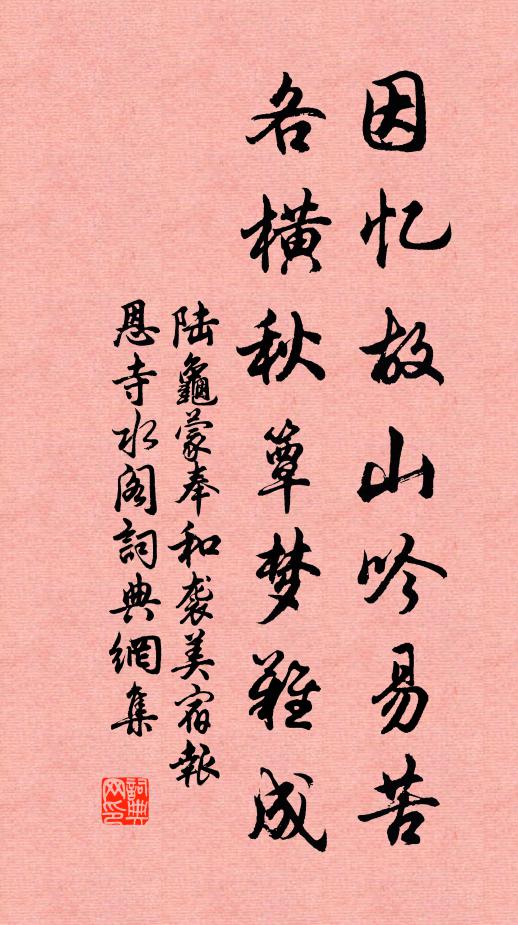 因忆故山吟易苦
各横秋簟梦難成
陆龜蒙奉和袭美宿報
恩寺水阁詞典網集
詞典
网印